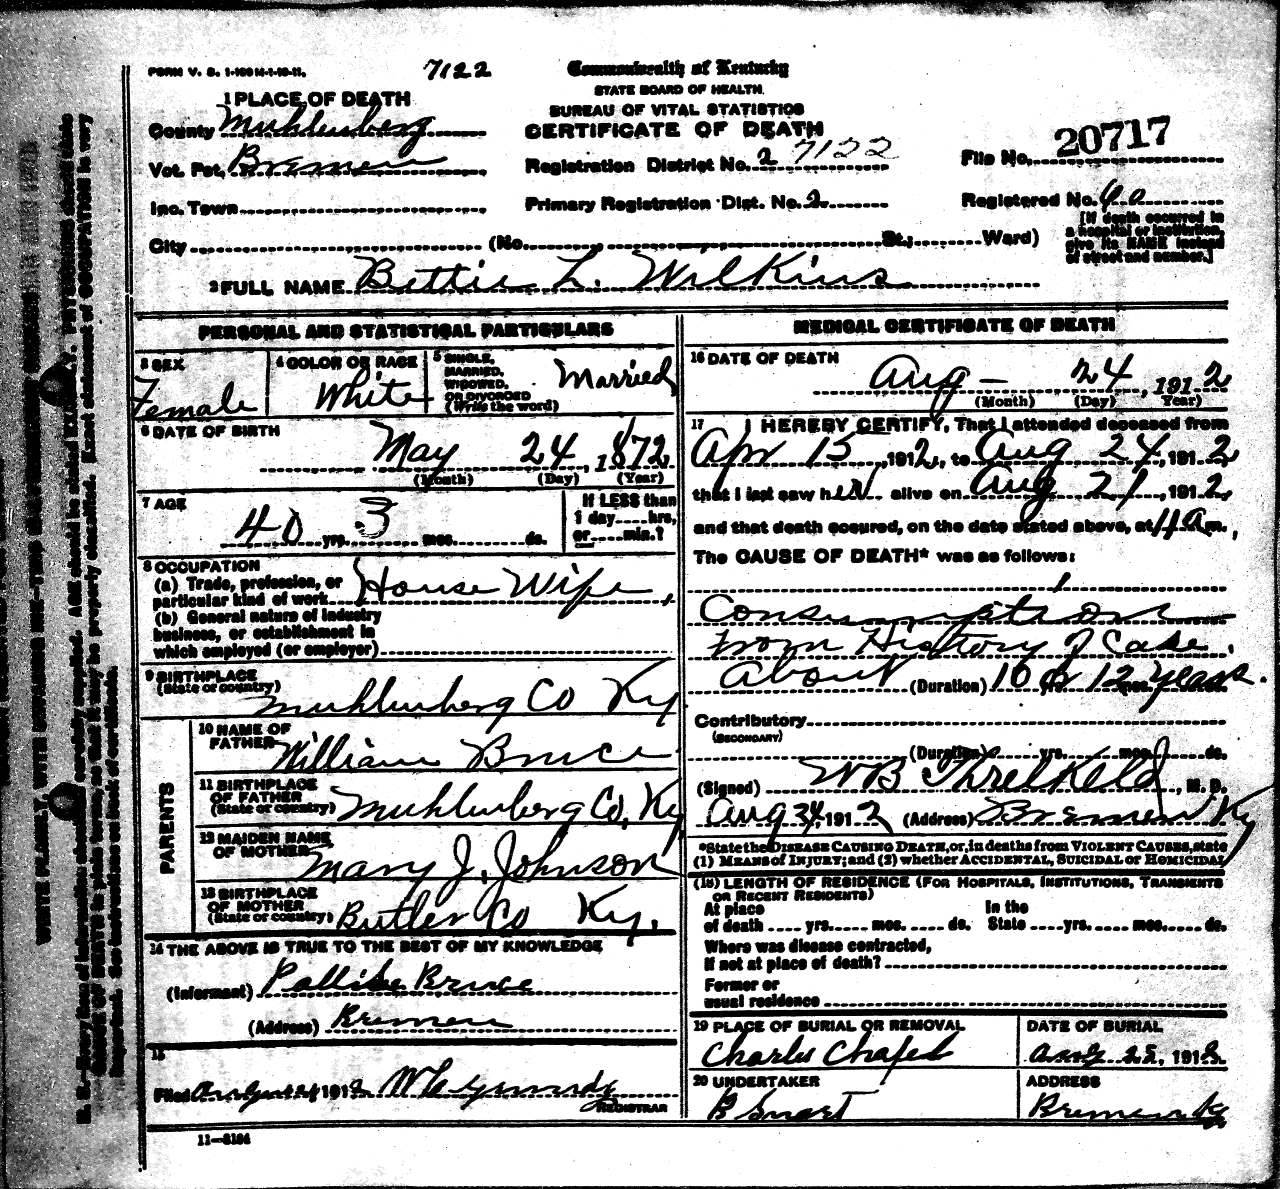 FORM V. S. 1-100 M-1-10-11.
7122
Commonwealth of Kentucky
STATE BOARD OF HEALTH.
BUREAU OF VITAL STATISTICS
CERTIFICATE OF DEATH
1 PLACE OF DEATH
County Muhlenberg
Vot. Pct. Bremen
Registration District No. 2 7122
File No. 20717
Inc. Town
Primary Registration Dist. No. 2
Registered No. 40
City (No. , St.; Ward)
[If death occurred in
a hospital or institution,
give its NAME instead
of street and number.]
2 FULL NAME Bettie L. Wilkins
PERSONAL AND STATISTICAL PARTICULARS
3 SEX
Female
4 COLOR OR RACE
White
5 SINGLE,
MARRIED,
WIDOWED,
OR DIVORCED
(Write the word)
Married
6 DATE OF BIRTH
May 24, 1872
(Month) (Day) (Year)
7 AGE
40 yrs. 3 mos. ds.
If LESS than
1 day hrs,
or min.?
8 OCCUPATION
(a) Trade, profession, or
particular kind of work House Wife,
(b) General nature of industry
business, or establishment in
which employed (or employer)
9 BIRTHPLACE
(State or country)
Muhlenberg Co Ky
PARENTS
10 NAME OF
FATHER William Bruce
11 BIRTHPLACE
OF FATHER
(State or country) Muhlenberg Co, Ky
12 MAIDEN NAME
OF MOTHER Mary J. Johnson
13 BIRTHPLACE
OF MOTHER
(State or country) Butler Co Ky.
14 THE ABOVE IS TRUE TO THE BEST OF MY KNOWLEDGE
(Informant) Bruce
(Address) Bremen
15
Filed 1912
REGISTRAR
11-5184
MEDICAL CERTIFICATE OF DEATH
16 DATE OF DEATH
Aug - 24, 1912
(Month) (Day) (Year)
17 I HEREBY CERTIFY, That I attended deceased from
Apr 15, 1912, to Aug 24, 1912
that I last saw her alive on Aug 21, 1912
and that death occured, on the date stated above, at 11 a m.,
The CAUSE OF DEATH* was as follows:
Consumption
from History of Case.
About (Duration) 10 or 12 years.
Contributory
(SECONDARY)
(Duration) yrs. mos. ds.
(Signed) WB Threlkeld, M. D.
Aug 24, 1912 (Address) Bremen Ky
*State the DISEASE CAUSING DEATH, or, in deaths from VIOLENT CAUSES, state
(1) MEANS OF INJURY; and (2) whether ACCIDENTAL, SUICIDAL OR HOMICIDAL
(18) LENGTH OF RESIDENCE (FOR HOSPITALS, INSTITUTIONS, TRANSIENTS
OR RECENT RESIDENTS)
At place
of death yrs. mos. ds.
In the
State yrs. mos. ds.
Where was disease contracted,
if not at place of death?
Former or
usual residence
19 PLACE OF BURIAL OR REMOVAL
Charles Chapel
DATE OF BURIAL
Aug 25, 1912
20 UNDERTAKER
B Smart
ADDRESS
Bremen Ky